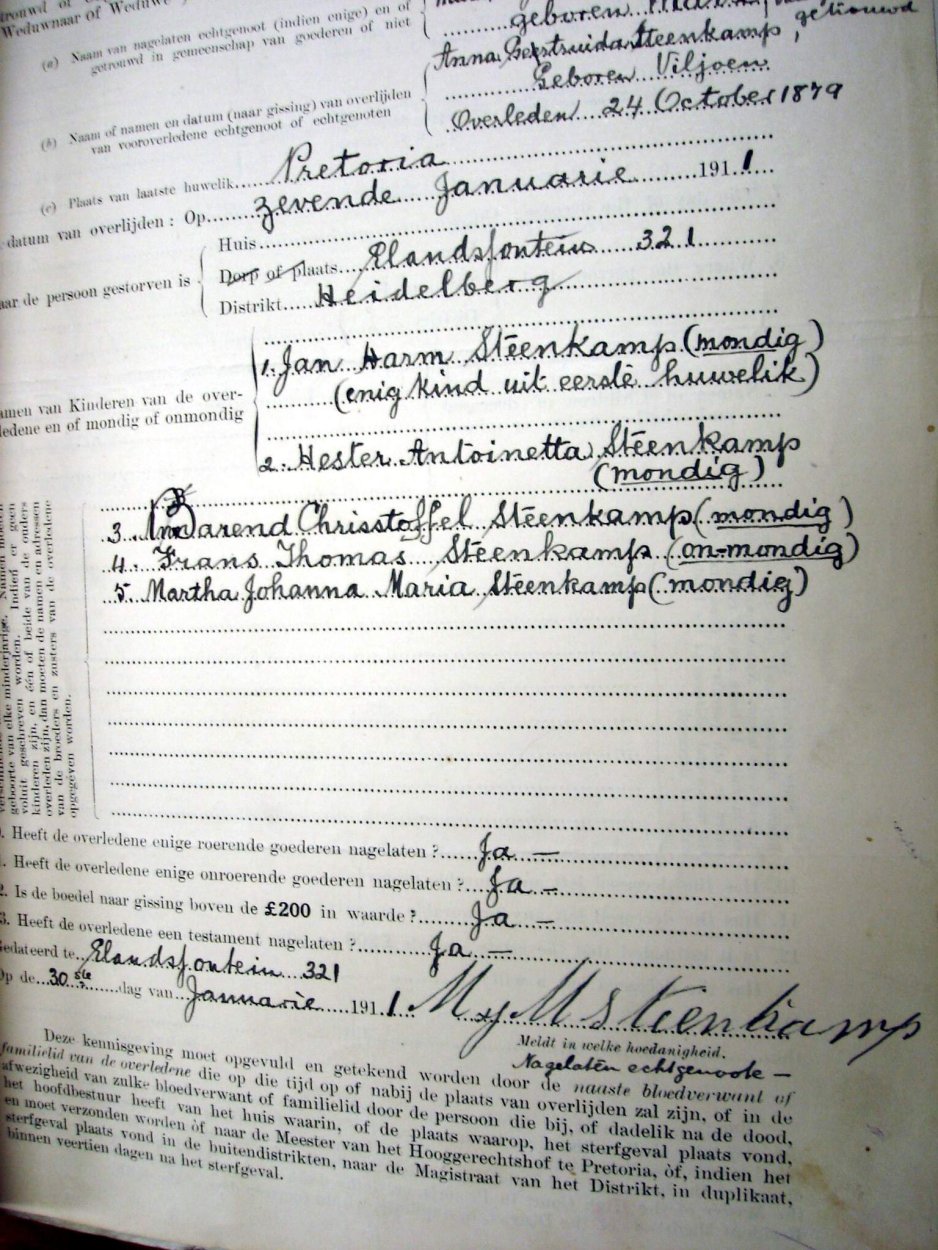 Weduwnaar of Weduwe
geboren
(a) Naam van nagelaten echtgenoot (indien enige) en of
getrouwd in gemeenschap van goederen of niet
getrouwd
Anna Geertruida Steenkamp,
Geboren Viljoen
(b) Naam of namen en datum (naar gissing) van overlijden
van vooroverledene echtgenoot of echtgenoten
Overleden 24 October 1879
(c) Plaats van laatste huwelik Pretoria
datum van overlijden: Op zevende Januarie 1911
Huis
aar de persoon gestorven is
Dorp of plaats Elandsfontein 321
Distrikt Heidelberg
1. Jan Harm Steenkamp (mondig)
(enig kind uit eerste huwelik)
amen van Kinderen van de over-
ledene en of mondig of onmondig
2. Hester Antoinetta Steenkamp
(mondig)
3. Barend Chrisstoffel Steenkamp (mondig)
4. Frans Thomas Steenkamp (on-mondig)
5. Martha Johanna Maria Steenkamp (mondig)
geboorte van elke minderjarige. Namen moeten
voluit geschreven worden. Indien er geen
kinderen zijn, en één of beide van de ouders
overleden zijn, dan moeten de namen en adressen
van de broeders en zusters van de overledene
opgegeven worden.
. Heeft de overledene enige roerende goederen nagelaten? Ja —
. Heeft de overledene enige onroerende goederen nagelaten? Ja —
2. Is de boedel naar gissing boven de £200 in waarde? Ja —
3. Heeft de overledene een testament nagelaten? Ja —
Gedateerd te Elandsfontein 321
Op de 30ste dag van Januarie 1911 M J M Steenkamp
Meldt in welke hoedanigheid.
Nagelaten echtgenoote —
Deze kennisgeving moet opgevuld en getekend worden door de naaste bloedverwant of
familielid van de overledene die op die tijd op of nabij de plaats van overlijden zal zijn, of in de
afwezigheid van zulke bloedverwant of familielid door de persoon die bij, of dadelik na de dood,
het hoofdbestuur heeft van het huis waarin, of de plaats waarop, het sterfgeval plaats vond,
en moet verzonden worden òf naar de Meester van het Hooggerechtshof te Pretoria, òf, indien het
sterfgeval plaats vond in de buitendistrikten, naar de Magistraat van het Distrikt, in duplikaat,
binnen veertien dagen na het sterfgeval.